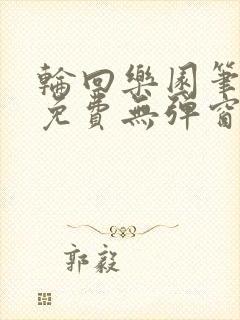 輪回樂園筆
免費無彈窗
郭毅